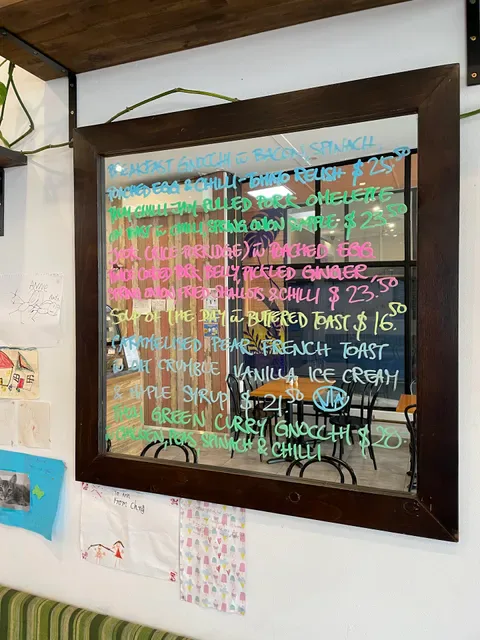 BREAKFAST GNOCCHI W BACON, SPINACH,
POACHED EGG & CHILLI-TOMATO RELISH $25.50
CHILLI JAM, PULLED PORK OMELETTE
SPRING ONION $23.50
(RICE PORRIDGE) W POACHED EGG,
PORK BELLY, PICKLED GINGER,
SPRING ONION, FRIED SHALLOTS & CHILLI $23.50
SOUP OF THE DAY W BUTTERED TOAST $16.50
CARAMELISED PEAR FRENCH TOAST
W OAT CRUMBLE VANILLA ICE CREAM
& MAPLE SYRUP $21.50
GREEN CURRY GNOCCHI $20.
W CHICKEN, PEAS, SPINACH & CHILLI